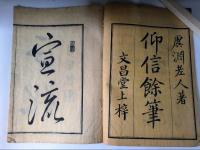 展淵老人著
仰信餘筆
文昌堂上梓
宣流